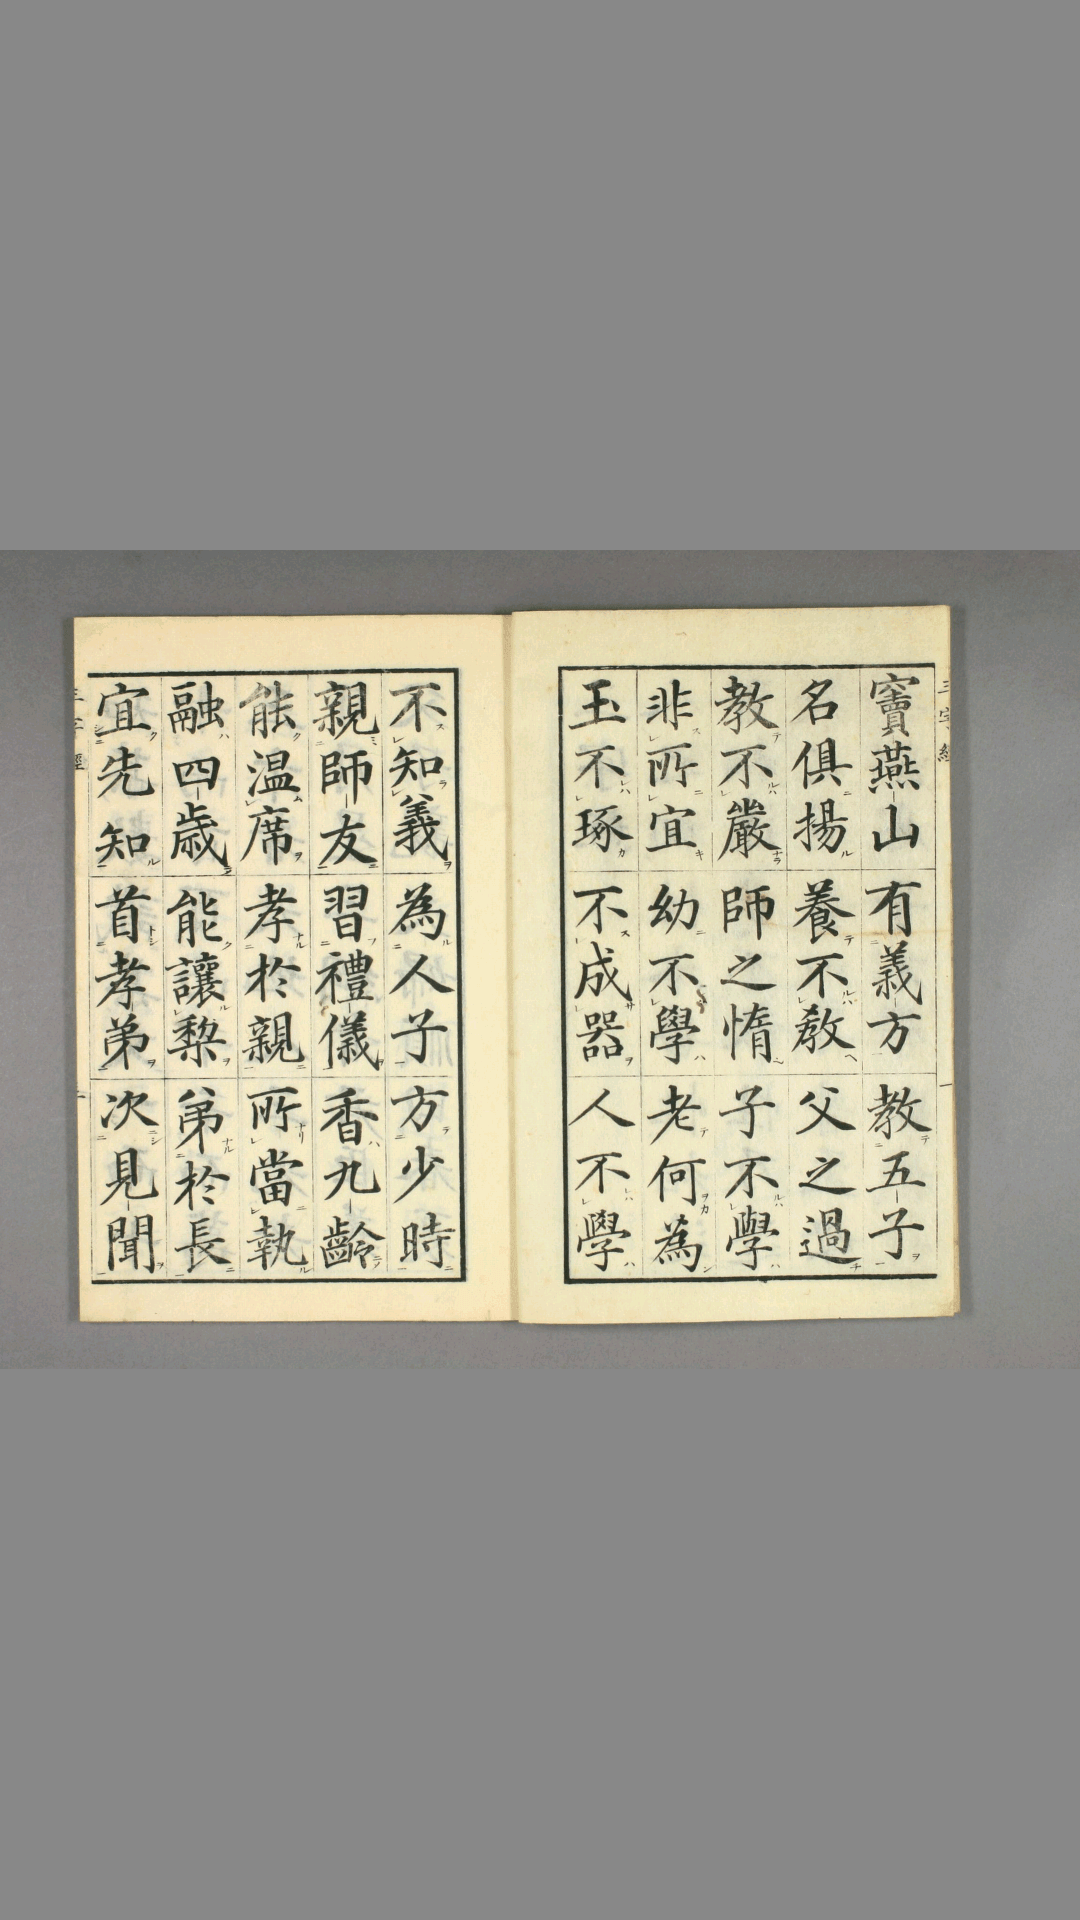 竇燕山有義方教五子
名俱揚養不教父之過
教不嚴師之惰子不學
非所宜幼不學老何為
玉不琢不成器人不學
不知義為人子方少時
親師友習禮儀香九齡
能温席孝於親所當執
融四歲能讓梨弟於長
宜先知首孝弟次見聞